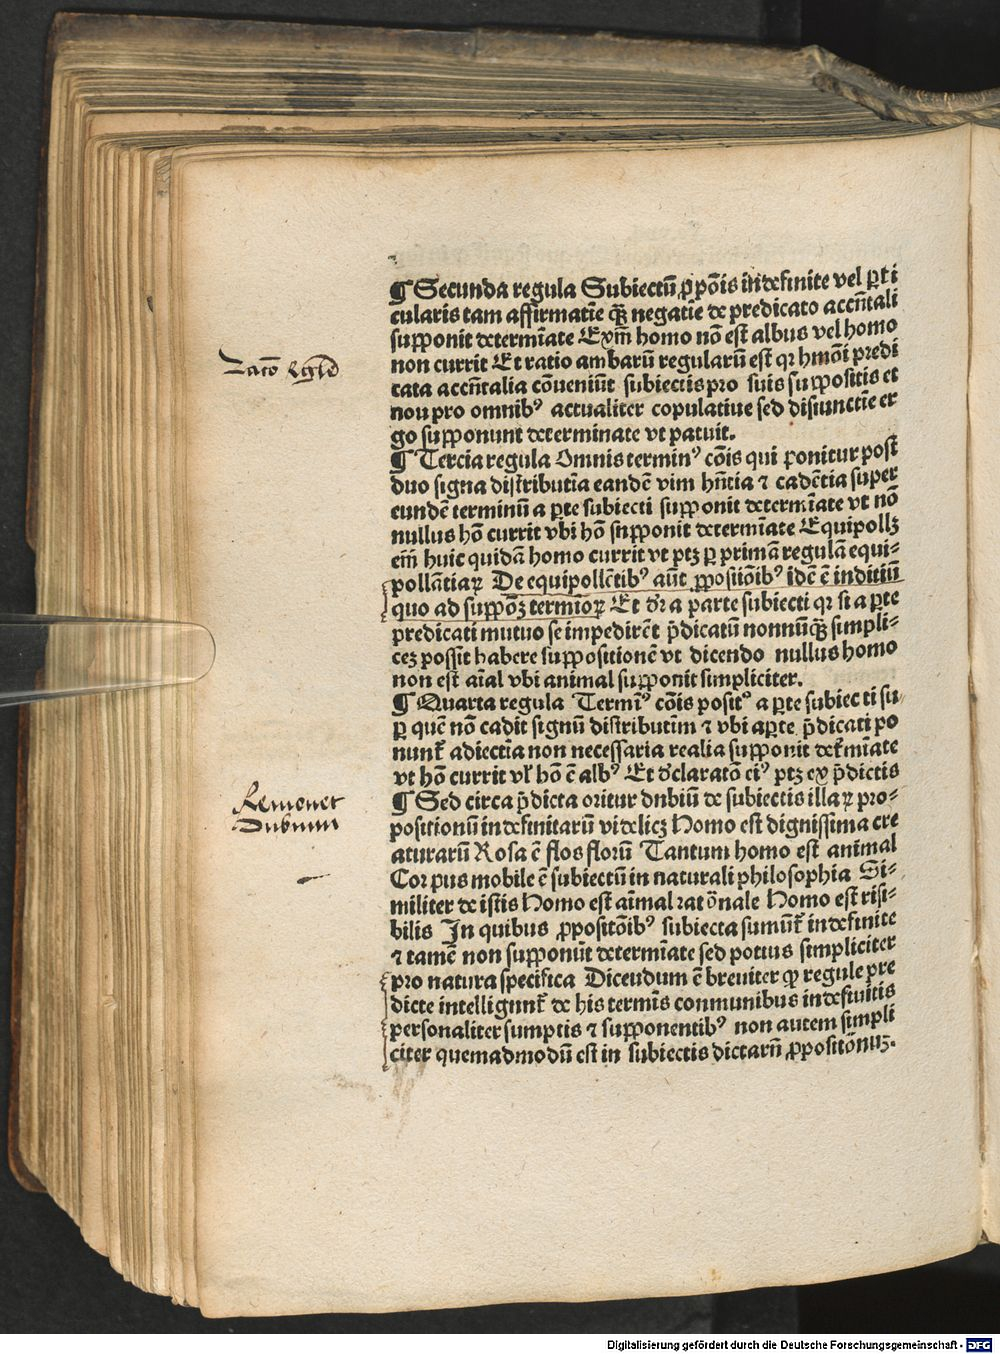 ¶ Secunda regula Subiectū ꝓpōis indefinite vel ꝑti
cularis tam affirmatīe qꝫ negatīe de predicato accn̄tali
supponit determīate Exm̄ homo nō est albus vel homo
non currit Et ratio ambarū regularū est qꝛ hmōi predi
cata accn̄talia cōueniūt subiectis pro suis suppositis et
nou pro omnibꝰ actualiter copulatiue sed disiunctīe er
go supponunt determinate vt patuit.
¶ Tercia regula Omnis terminꝰ cōis qui ponitur post
duo signa distributīa eandē vim hn̄tia ⁊ cadētia super
eundē terminū a ꝑte subiecti supponit determīate vt nō
nullus hō currit vbi hō snpponit determīate Equipollꝫ
em̄ huic quidā homo currit vt ptꝫ ꝑ primā regulā equi⸗
pollātiaꝝ De equipollētibꝰ aūt ꝓpositiōibꝰ idē ē inditiū
quo ad suppōꝫ termīoꝝ Et dr̄ a parte subiecti qꝛ si a ꝑte
predicati mutuo se impedirēt p̄dicatū nonnūqꝫ simpli⸗
ceꝫ possit habere suppositionē vt dicendo nullus homo
non est aīal vbi animal supponit simpliciter.
¶ Quarta regula Termīꝰ cōis positꝰ a ꝑte subiec ti su⸗
ꝑ quē nō cadit signū distributīm ⁊ vbi aꝑte p̄dicati po
nunt᷑ adiectīa non necessaria realia supponit det᷑mīate
vt hō currit vl᷑ hō ē albꝰ Et d᷑claratō eiꝰ ptꝫ ex p̄dictis
¶ Sed circa p̄dicta oritur dnbiū de subiectis illaꝝ pro⸗
positionū indefinitarū videlicꝫ Homo est dignissima cre
aturarū Rosa ē flos florū Tantum homo est animal
Cor pus mobile ē subiectū in naturali philosophia Si⸗
militer de istis Homo est aīmal rat ōnale Homo est risi⸗
bilis In quibus ꝓpositōibꝰ subiecta sumūt᷑ indefinite
⁊ tamē non supponūt determīate sed potius simpliciter
pro natura specifica Dicendum ē breuiter ꝙ regule pre
dicte intelligunt᷑ de his termīs conmunibus indefinitis
personaliter sumptis ⁊ supponentibꝰ non autem simpli
citer quemadmodū est in subiectis dictarū ꝓpositōnuꝫ.
Remouet
Dubium
Digitalisierung gefördert durch die Deutsche Forschungsgemeinschaft - DFG